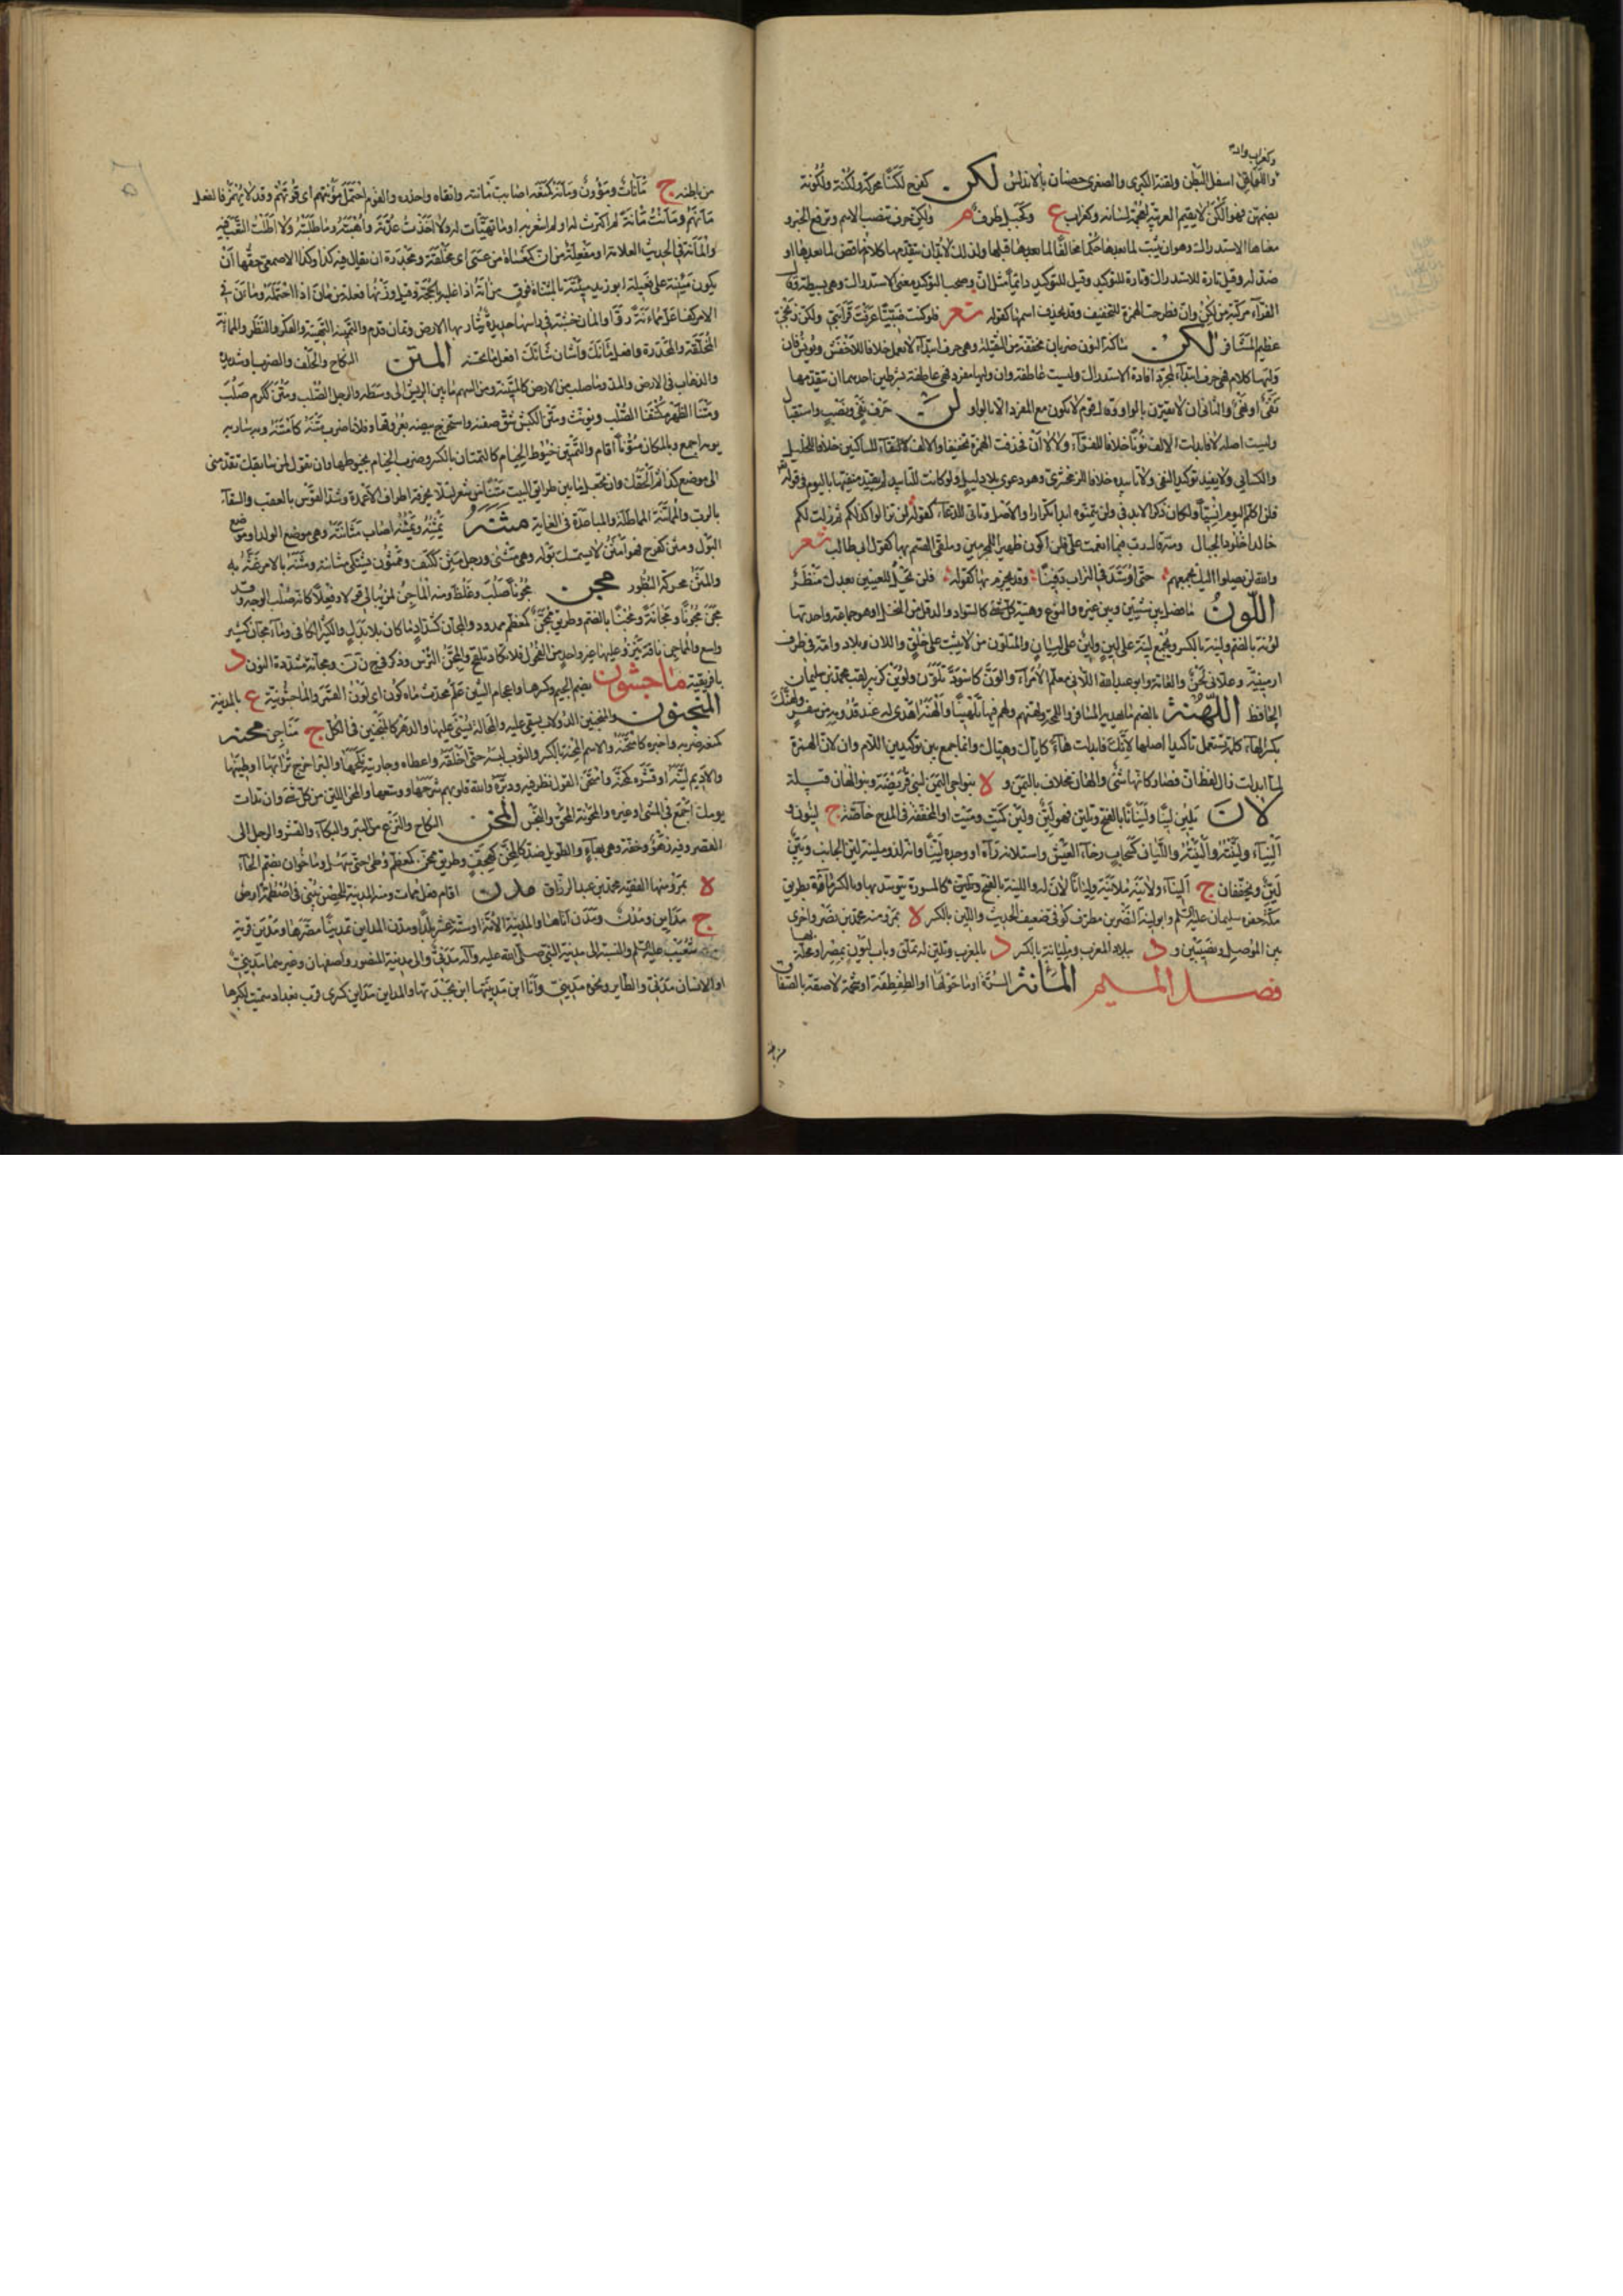 وكغراب والد
واللواقن اسفل البطن ولقنة الكبرى والصغرى حصنان بالاندلس لكن كفرح لكنا محركة ولكنة ولكونة
بضمهن فهو الكن لا يقيم العربية لعجمة لسانه وكغراب ع وكجبل ظرف م ولكن حرف تنصب الاسم وترفع الخبر و
معناها الاستدراك وهو ان يثبت لما بعدها حكما مخالفا لما قبلها ولذلك لا بد ان يتقدمها كلام مناقض لما بعدها او
ضد له وقيل تارة للاستدراك وتارة للتوكيد وقيل للتوكيد دائما مثل ان ويصحب التوكيد معنى الاستدراك وهي بسيطة وقال
الفراء مركبة من لكن وان فطرحت الهمزة للتخفيف وقد يحذف اسمها كقوله شعر فلو كنت ضبيا عرفت قرابتي ولكن زنجي
عظيم المشافر لكن ساكنة النون ضربان مخففة من الثقيلة وهي حرف ابتداء لا تعمل خلافا للاخفش ويونس فان
وليها كلام فهي حرف ابتداء لمجرد افادة الاستدراك وليست عاطفة وان وليها مفرد فهي عاطفة بشرطين احدهما ان يتقدمها
نفي او نهي والثاني ان لا تقترن بالواو وقال قوم لا تكون مع المفرد الا بالواو لن حرف نفي ونصب واستقبال
وليست اصله لا فابدلت الالف نونا خلافا للفراء ولا لا ان فحذفت الهمزة تخفيفا والالف لالتقاء الساكنين خلافا للخليل
والكسائي ولا يفيد توكيد النفي ولا تأبيده خلافا للزمخشري وهو دعوى بلا دليل ولو كانت للتأبيد لم يقيد منفيها باليوم في قوله
فلن اكلم اليوم انسيا ولكان ذكر الابد في ولن يتمنوه ابدا تكرارا والاصل وتأتي للدعاء كقوله لن تزالوا كذلكم ثم لا زلت لكم
خالدا خلود الجبال ومنه قال رب بما انعمت علي فلن اكون ظهيرا للمجرمين ويلقى القسم بها كقول ابي طالب شعر
والله لن يصلوا اليك بجمعهم حتى اوسد في التراب دفينا وقد يجزم بها كقوله فلن يحل للعينين بعدك منظر
اللون ما فصل بين شيئين وبين غيره والنوع وهيئة كل شيء كالسواد والدقل من النخل او هو جماعة واحدتها
لونة بالضم ولينة بالكسر ويجمع لينة على لين ولين على ليان والمتلون من لا يثبت على خلق واللان بلاد وامة في طرف
ارمينية وعلان لحن والعامة وابو عبد الله اللاني معلم الامراء والون كاسود تلون ولوين كزبير لقب محمد بن سليمان
الحافظ اللهنة بالضم ما يهديه المسافر واللمجة ولهنهم ولهم فيهما تلهينا والهنه اهدى له عند قدومه من سفر ولهنك
بكسر الهاء كلمة تستعمل تأكيدا اصلها لانك فابدلت هاء كاياك وهياك وانما جمع بين توكيدين اللام وان لان الهمزة
لما ابدلت زال لفظ ان فصار كانها شيء والهان مخلاف باليمن و ة بنواحي المدينة لبني قريظة وبنو الهان قبيلة
لان يلين لينا وليانا بالفتح وتلين فهو لين ولين كميت وميت او المخففة في المدح خاصة ج لينون و
اليناء ولينته والينته والليان كسحاب رخاء العيش واستلانه رآه او وجده لينا وانه لذو ملينة لين الجانب وهين
لين ويخففان ج اليناء ولاينه ملاينة وليانا لان له واللينة بالفتح كالمسورة يتوسد بها وبالكسر ماءة بطريق
مكة حفره سليمان عليه السلم وابو لينة النضر بن مطرف كوفي ضعيف الحديث واللين بالكسر ة بمرو منه محمد بن نصر واخرى
بين الموصل ونصيبين و د ببلاد المغرب ومليانة بالكسر د بالمغرب وتلين له تملق وباب ليون بمصر او محلة بها
فصل الميم المأنة السرة او ما حولها او الطفطفة او شحمة لاصقة بالصفاق
من باطنه
من باطنه ج مأنات ومؤون ومأنه كمنعه اصاب مأنته واتقاه وحذره والقوم احتمل مؤنتهم اي قوتهم وقد لا يهمز فالفعل
مانهم وما مأنت مأنه لم اكترث له او لم اشعر به او ما تهيأت له ولا اخذت عدته واهبته وما طلبته ولا اطلت التعب فيه
والمئنة في الحديث العلامة او مفعلة من ان كمعساة من عسى اي مخلقة ومجدرة ان يقال فيه كذا وكذا الاصمعي حقها ان
يكون مئينة على فعيلة ابو زيد مئتة بالمثناة فوق من اته اذا غلبه بالحجة وقيل وزنها فعلة من مان اذا احتمله وماءن في
الامر كفاعل مماءنة روأ والمان خشبة في راسها حديدة تثار بها الارض وتمأن قدم والتمئنة التهيئة والفكر والنظر والممأنة
المخلقة والمجدرة وافعل شأنك واشأن شأنك افعل ما تحسنه المتن النكاح والحلف والضرب او شديده
والذهاب في الارض والمد وما صلب من الارض كالمتنة ومن السهم ما بين الريش الى وسطه والرجل الصلب ومتن ككرم صلب
ومتنا الظهر مكتنفا الصلب ويؤنث ومتن الكبش شق صفنه واستخرج بيضه بعروقها وفلانا ضرب متنه كامتنه وبه سار به
يومه اجمع وبالمكان متونا اقام والتمتين خيوط الخيام كالتمتان بالكسر وضرب الخيام بخيوطها وان تقول لمن سابقك تقدمني
الى موضع كذا ثم الحقك وان تجعل ما بين طرائق البيت متنا من شعر لئلا تمزقه اطراف الاعمدة وشد القوس بالعقب والسقاء
بالرب والمماتنة المماطلة والمباعدة في الغاية مثنه يمثنه ويمثنه اصاب مثانته وهي موضع الولد او موضع
البول ومثن كفرح فهو امثن لا يستمسك بوله وهي مثناء ورجل مثن ككتف وممثون يشتكي مثانته ومثنه بالامر غته به
والمثن محركة البظور مجن مجونا صلب وغلظ ومنه الماجن لمن لا يبالي قولا وفعلا كانه صلب الوجه وقد
مجن مجونا ومجانة ومجنا بالضم وطريق ممجن كمعظم ممدود والمجان كشداد ما كان بلا بدل والكثير الكافي وماء مجان كثير
واسع والمماجن ناقة ينزو عليها غير واحد من الفحول فلا تكاد تلقح والمجن الترس وذكر في ج ن ن ومجانة مشددة النون د
بافريقية ماجشون بضم الجيم وكسرها واعجام الشين علم محدث معرب ماه كون اي لون القمر والماجشونية ع بالمدينة
المنجنون والمنجنين الدولاب يستقى عليه او المحالة يسنى عليها والدهر كالمنجنين في الكل ج مناجين محنه
كمنعه ضربه واختبره كامتحنه والاسم المحنة بالكسر والثوب لبسه حتى اخلقه واعطاه وجاريته نكحها والبئر اخرج ترابها او طينها
والاديم لينه او قشره كمحنه وامتحن القول نظر فيه ودبره والله قلوبهم شرحها ووسعها والمحن اللين من كل شيء وان تدأب
يومك اجمع في المشي او غيره والمحونة المحق والبخس المخن النكاح والنزع من البئر والبكاء والقشر والرجل الى
القصر وفيه زهو وخفة وهي بهاء والطويل ضد كالمخن كهجف وطريق ممخن كمعظم وطئ حتى سهل وماخوان بضم الخاء
ة بمرو منها الفقيه محمد بن عبد الرزاق مدن اقام فعل ممات ومنه المدينة للحصن يبنى في اصطمة ارض
ج مدائن ومدن ومدن ومدن اتاها والمدينة الامة او ستة عشر بلدا ومدن المدائن تمدينا مصرها ومدين قرية
شعيب عليه السلم والنسبة الى مدينة النبي صلى الله عليه وآله مدني والى مدينة المنصور واصفهان وغيرهما مديني
او الانسان مدني والطاير ونحوه مديني وانا ابن مدينتها ابن بجدتها والمداين مداين كسرى قرب بغداد سميت لكبرها